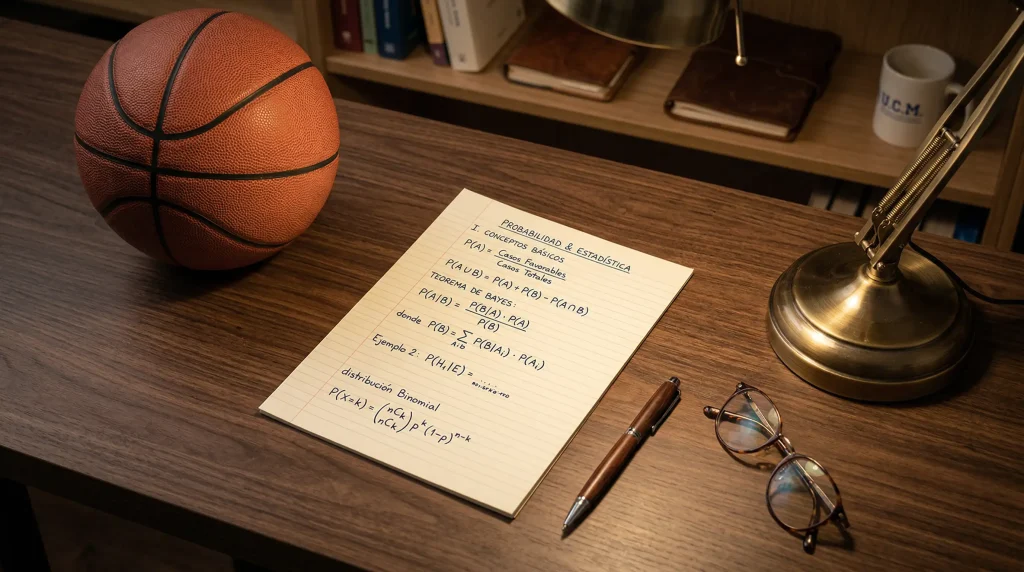 PROBABILIDAD & ESTADÍSTICA
I. CONCEPTOS BÁSICOS
P(A) = Casos Favorables
Casos Totales
P(A∪B) = P(A) + P(B) - P(A∩B)
TEOREMA DE BAYES:
P(A|B) = P(B|A) · P(A)
P(B)
donde P(B) = ∑ P(B|Ai) · P(Ai)
Ejemplo 2: P(H₁|E) =
distribución Binomial
P(X=k) = (nCk
nCk) p^k (1-p)^n-k
U.C.M.